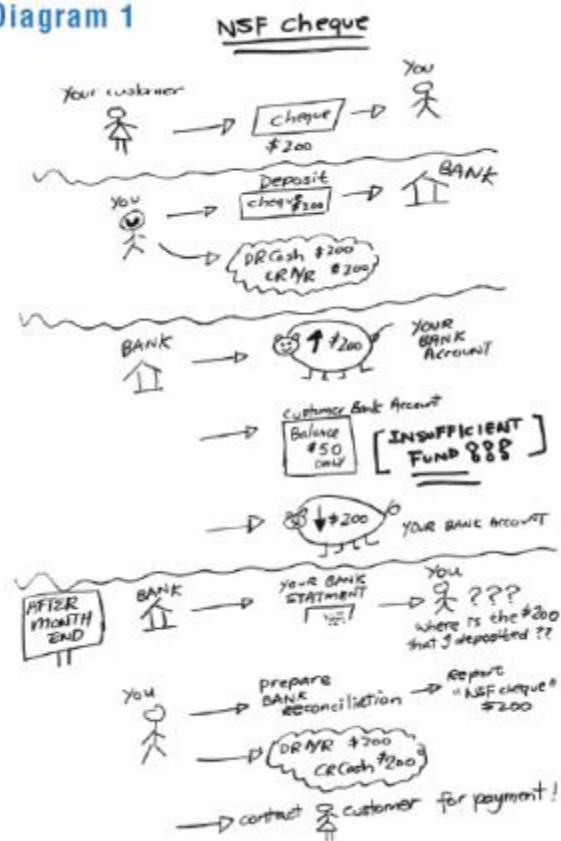 Diagram 1
NSF cheque
Your customer
You
cheque
$200
Deposit
BANK
You
cheque $200
DR Cash $200
CR A/R $200
BANK
↑ $200
YOUR
BANK
ACCOUNT
Customer Bank Account
Balance
$50
ONLY
[INSUFFICIENT
FUND !!!]
↓ $200
YOUR BANK ACCOUNT
AFTER
MONTH
END
BANK
YOUR BANK
STATMENT
You
???
where is the $200
that I deposited ??
You
prepare
BANK
reconciliation
Report
"NSF cheque"
$200
DR A/R $200
CR Cash $200
contact customer for payment!